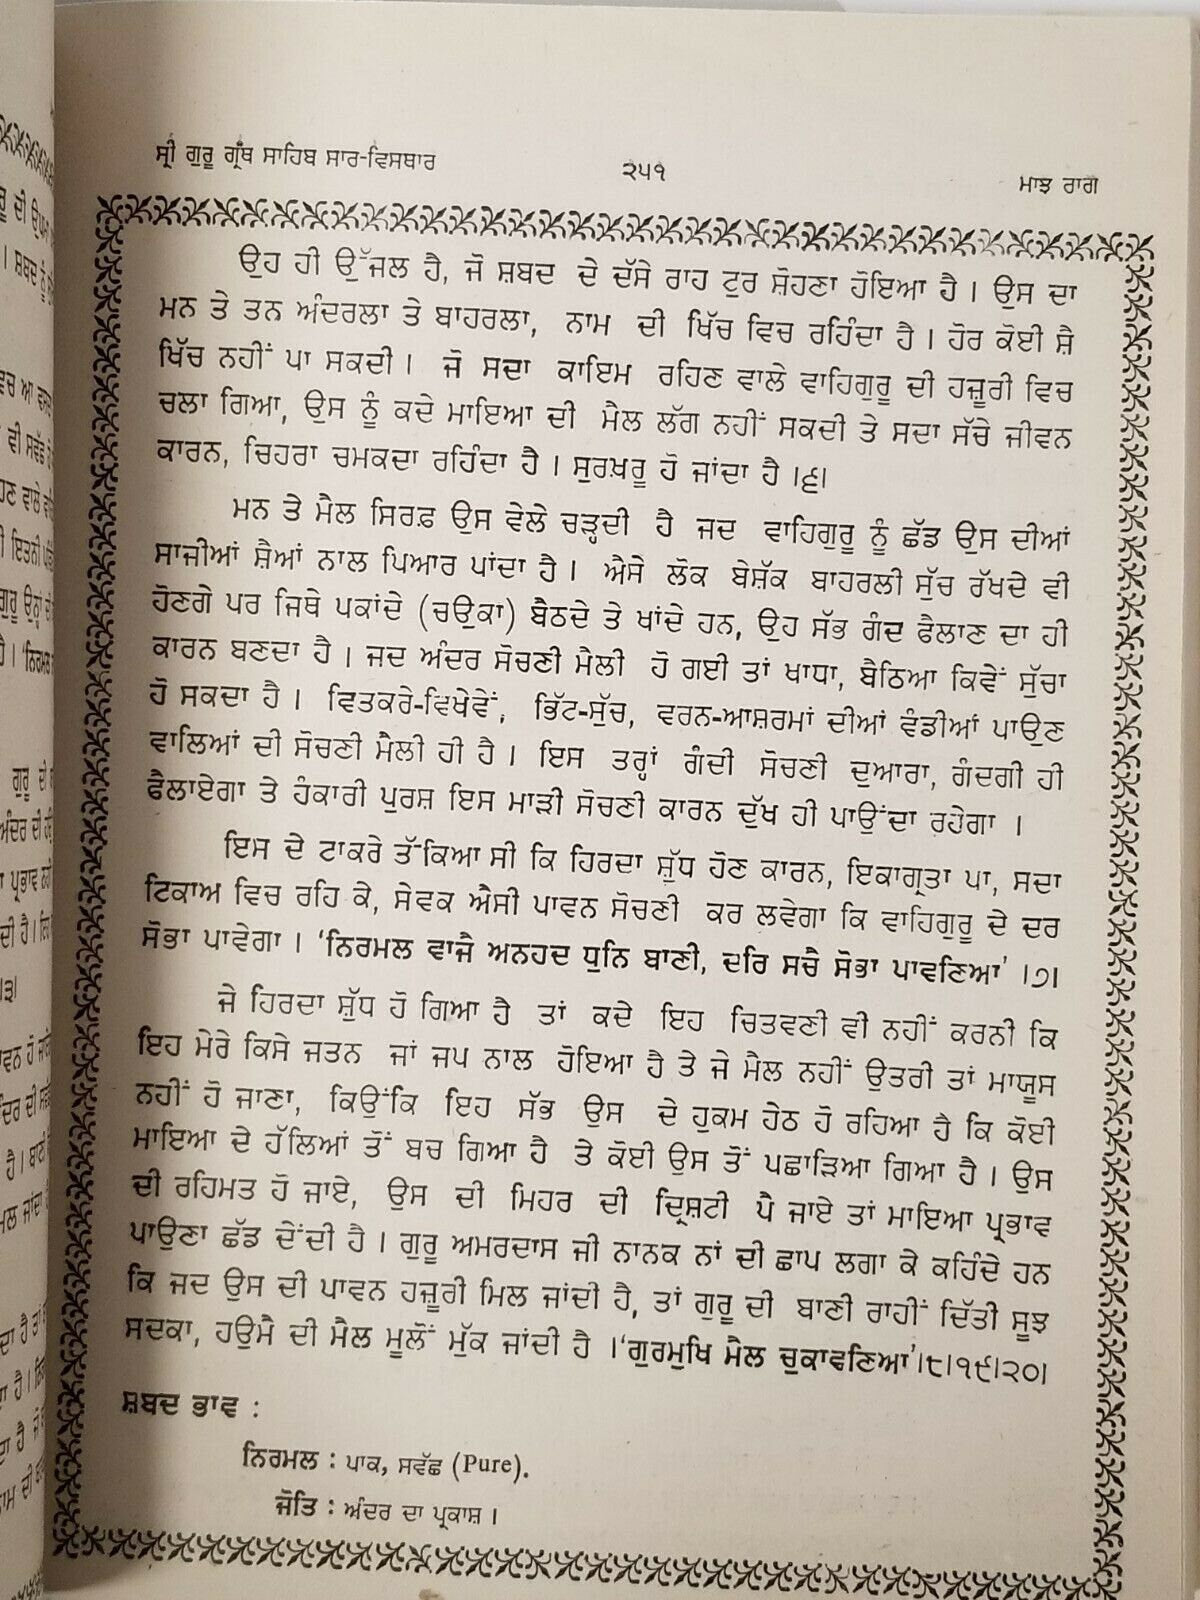 ਸ੍ਰੀ ਗੁਰੂ ਗ੍ਰੰਥ ਸਾਹਿਬ ਸਾਰ-ਵਿਸਥਾਰ
੨੫੧
ਮਾਝ ਰਾਗ
ਉਹ ਹੀ ਉੱਜਲ ਹੈ, ਜੋ ਸ਼ਬਦ ਦੇ ਦੱਸੇ ਰਾਹ ਟੁਰ ਸ਼ੋਹਣਾ ਹੋਇਆ ਹੈ। ਉਸ ਦਾ
ਮਨ ਤੇ ਤਨ ਅੰਦਰਲਾ ਤੇ ਬਾਹਰਲਾ, ਨਾਮ ਦੀ ਖਿੱਚ ਵਿਚ ਰਹਿੰਦਾ ਹੈ। ਹੋਰ ਕੋਈ ਸ਼ੈ
ਖਿੱਚ ਨਹੀਂ ਪਾ ਸਕਦੀ। ਜੋ ਸਦਾ ਕਾਇਮ ਰਹਿਣ ਵਾਲੇ ਵਾਹਿਗੁਰੂ ਦੀ ਹਜ਼ੂਰੀ ਵਿਚ
ਚਲਾ ਗਿਆ, ਉਸ ਨੂੰ ਕਦੇ ਮਾਇਆ ਦੀ ਮੈਲ ਲੱਗ ਨਹੀਂ ਸਕਦੀ ਤੇ ਸਦਾ ਸੱਚੇ ਜੀਵਨ
ਕਾਰਨ, ਚਿਹਰਾ ਚਮਕਦਾ ਰਹਿੰਦਾ ਹੈ। ਸੁਰਖ਼ਰੂ ਹੋ ਜਾਂਦਾ ਹੈ।੬।
ਮਨ ਤੇ ਮੈਲ ਸਿਰਫ਼ ਉਸ ਵੇਲੇ ਚੜ੍ਹਦੀ ਹੈ ਜਦ ਵਾਹਿਗੁਰੂ ਨੂੰ ਛੱਡ ਉਸ ਦੀਆਂ
ਸਾਜੀਆਂ ਸ਼ੈਆਂ ਨਾਲ ਪਿਆਰ ਪਾਂਦਾ ਹੈ। ਐਸੇ ਲੋਕ ਬੇਸ਼ੱਕ ਬਾਹਰਲੀ ਸੁੱਚ ਰੱਖਦੇ ਵੀ
ਹੋਣਗੇ ਪਰ ਜਿਥੇ ਪਕਾਂਦੇ (ਚਉਕਾ) ਬੈਠਦੇ ਤੇ ਖਾਂਦੇ ਹਨ, ਉਹ ਸੱਭ ਗੰਦ ਫੈਲਾਣ ਦਾ ਹੀ
ਕਾਰਨ ਬਣਦਾ ਹੈ। ਜਦ ਅੰਦਰ ਸੋਚਣੀ ਮੈਲੀ ਹੋ ਗਈ ਤਾਂ ਖਾਧਾ, ਬੈਠਿਆ ਕਿਵੇਂ ਸੁੱਚਾ
ਹੋ ਸਕਦਾ ਹੈ। ਵਿਤਕਰੇ-ਵਿਖੇਵੇਂ, ਭਿੱਟ-ਸੁੱਚ, ਵਰਨ-ਆਸ਼ਰਮਾਂ ਦੀਆਂ ਵੰਡੀਆਂ ਪਾਉਣ
ਵਾਲਿਆਂ ਦੀ ਸੋਚਣੀ ਮੈਲੀ ਹੀ ਹੈ। ਇਸ ਤਰ੍ਹਾਂ ਗੰਦੀ ਸੋਚਣੀ ਦੁਆਰਾ, ਗੰਦਗੀ ਹੀ
ਫੈਲਾਏਗਾ ਤੇ ਹੰਕਾਰੀ ਪੁਰਸ਼ ਇਸ ਮਾੜੀ ਸੋਚਣੀ ਕਾਰਨ ਦੁੱਖ ਹੀ ਪਾਉਂਦਾ ਰਹੇਗਾ ।
ਇਸ ਦੇ ਟਾਕਰੇ ਤੱਕਿਆ ਸੀ ਕਿ ਹਿਰਦਾ ਸ਼ੁੱਧ ਹੋਣ ਕਾਰਨ, ਇਕਾਗ੍ਰਤਾ ਪਾ, ਸਦਾ
ਟਿਕਾਅ ਵਿਚ ਰਹਿ ਕੇ, ਸੇਵਕ ਐਸੀ ਪਾਵਨ ਸੋਚਣੀ ਕਰ ਲਵੇਗਾ ਕਿ ਵਾਹਿਗੁਰੂ ਦੇ ਦਰ
ਸੋਭਾ ਪਾਵੇਗਾ। 'ਨਿਰਮਲ ਵਾਜੈ ਅਨਹਦ ਧੁਨਿ ਬਾਣੀ, ਦਰਿ ਸਚੈ ਸੋਭਾ ਪਾਵਣਿਆ' ।੭।
ਜੇ ਹਿਰਦਾ ਸ਼ੁੱਧ ਹੋ ਗਿਆ ਹੈ ਤਾਂ ਕਦੇ ਇਹ ਚਿਤਵਣੀ ਵੀ ਨਹੀਂ ਕਰਨੀ ਕਿ
ਇਹ ਮੇਰੇ ਕਿਸੇ ਜਤਨ ਜਾਂ ਜਪ ਨਾਲ ਹੋਇਆ ਹੈ ਤੇ ਜੇ ਮੈਲ ਨਹੀਂ ਉਤਰੀ ਤਾਂ ਮਾਯੂਸ
ਨਹੀਂ ਹੋ ਜਾਣਾ, ਕਿਉਂਕਿ ਇਹ ਸੱਭ ਉਸ ਦੇ ਹੁਕਮ ਹੇਠ ਹੋ ਰਹਿਆ ਹੈ ਕਿ ਕੋਈ
ਮਾਇਆ ਦੇ ਹੱਲਿਆਂ ਤੋਂ ਬਚ ਗਿਆ ਹੈ ਤੇ ਕੋਈ ਉਸ ਤੋਂ ਪਛਾੜਿਆ ਗਿਆ ਹੈ। ਉਸ
ਦੀ ਰਹਿਮਤ ਹੋ ਜਾਏ, ਉਸ ਦੀ ਮਿਹਰ ਦੀ ਦ੍ਰਿਸ਼ਟੀ ਪੈ ਜਾਏ ਤਾਂ ਮਾਇਆ ਪ੍ਰਭਾਵ
ਪਾਉਣਾ ਛੱਡ ਦੇਂਦੀ ਹੈ। ਗੁਰੂ ਅਮਰਦਾਸ ਜੀ ਨਾਨਕ ਨਾਂ ਦੀ ਛਾਪ ਲਗਾ ਕੇ ਕਹਿੰਦੇ ਹਨ
ਕਿ ਜਦ ਉਸ ਦੀ ਪਾਵਨ ਹਜ਼ੂਰੀ ਮਿਲ ਜਾਂਦੀ ਹੈ, ਤਾਂ ਗੁਰੂ ਦੀ ਬਾਣੀ ਰਾਹੀਂ ਦਿੱਤੀ ਸੂਝ
ਸਦਕਾ, ਹਉਮੈ ਦੀ ਮੈਲ ਮੂਲੋਂ ਮੁੱਕ ਜਾਂਦੀ ਹੈ।'ਗੁਰਮੁਖਿ ਮੈਲ ਚੁਕਾਵਣਿਆ'।੮।੧੯।੨੦।
ਸ਼ਬਦ ਭਾਵ :
ਨਿਰਮਲ : ਪਾਕ, ਸਵੱਛ (Pure).
ਜੋਤਿ : ਅੰਦਰ ਦਾ ਪ੍ਰਕਾਸ਼ ।